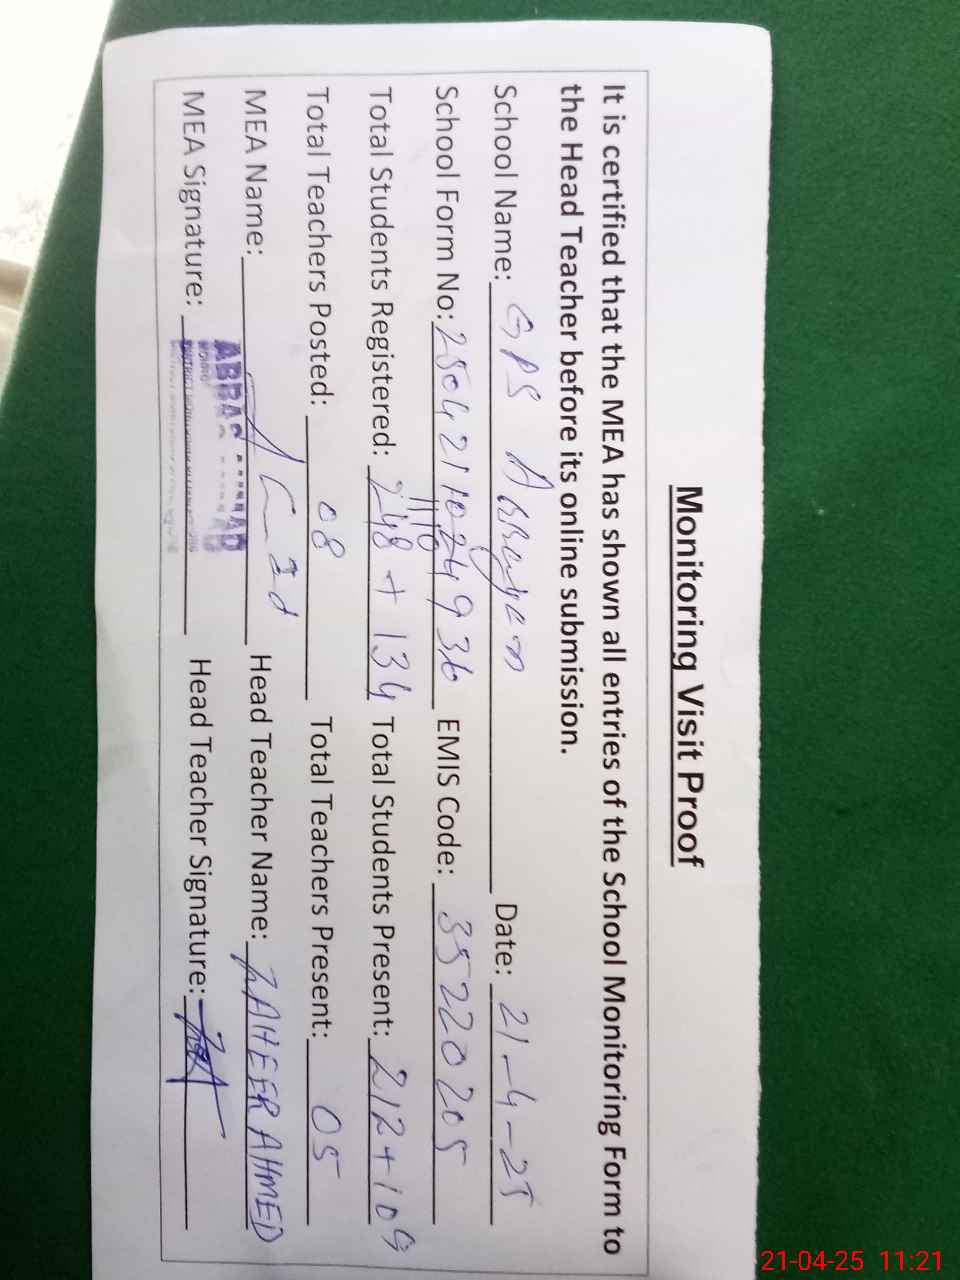 Monitoring Visit Proof
It is certified that the MEA has shown all entries of the School Monitoring Form to
the Head Teacher before its online submission.
School Name: GPS Date: 21-4-25
School Form No: EMIS Code: 35220205
Total Students Registered: 248 + 134 Total Students Present: 212 + 109
Total Teachers Posted: 08 Total Teachers Present: 05
MEA Name: Head Teacher Name: ZAHEER AHMED
MEA Signature: Head Teacher Signature:
ABBAS
21-04-25 11:21